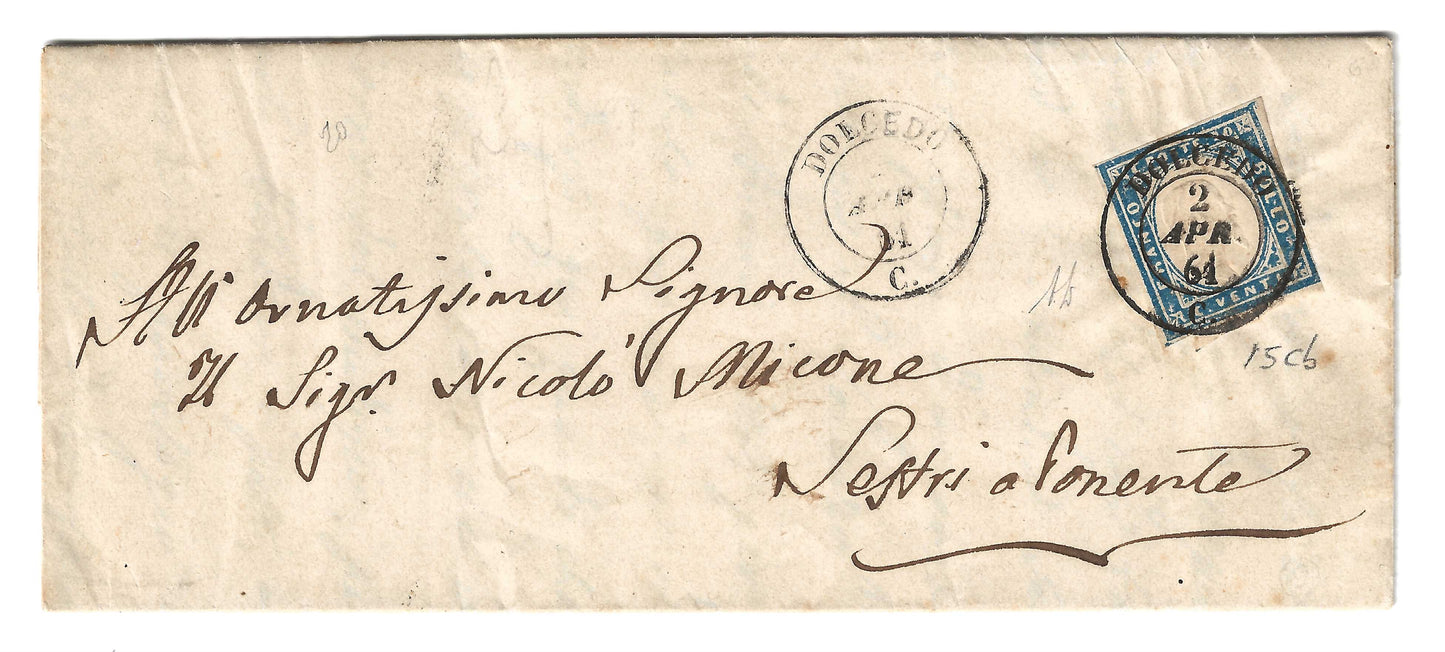 20
DOLCEDO
APR
61
C.
DOLCEDO
2
APR
61
C.
BOLLO
C. VENTI
15Cb
All' Ornatissimo Signore
Il Sigr. Nicolò Micone
Sestri a Ponente